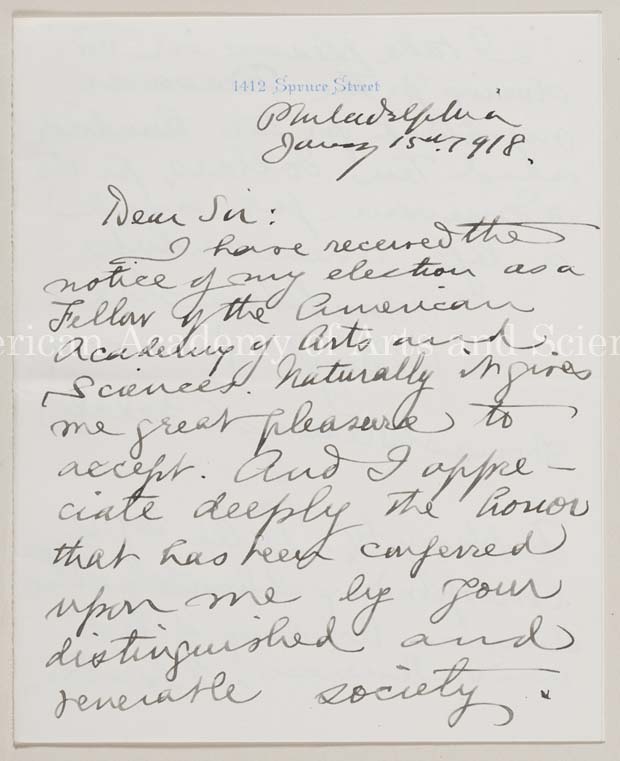 1412 Spruce Street
Philadelphia
Jan'y 15th 1918.
Dear Sir:
I have received the
notice of my election as a
Fellow of the American
Academy of Arts and
Sciences. Naturally it gives
me great pleasure to
accept. And I appre-
ciate deeply the honor
that has been conferred
upon me by your
distinguished and
venerable society.
erican Academy of Arts and Scien